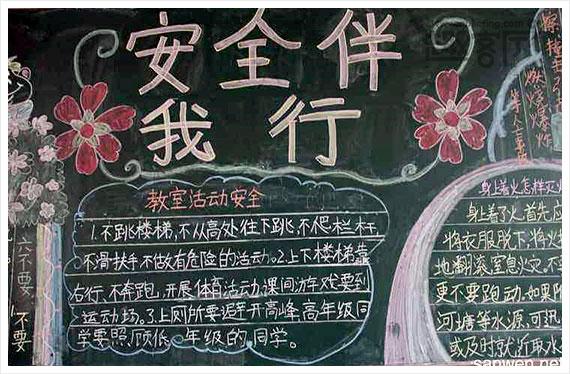 安全伴
我行
教室活动安全
1.不跳楼梯,不从高处往下跳,不爬栏杆
不滑扶手不做有危险的活动。2.上下楼梯靠
右行,不奔跑,开展体育活动,课间游戏要到
运动场。3.上厕所要避开高峰,高年级同
学要照顾低 年级的同学。
六不要
不要
燃烧爆炸
身上着火怎样灭火
身上着了火,首先应
将衣服脱下,将火
地翻滚,窒息火灾。不
更不要跑动,如果附
河塘等水源,可迅
或及时就近取水
sanwen.net